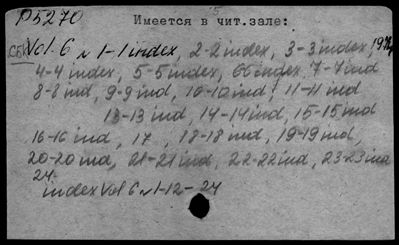 P5270
Имеется в чит.зале:
Vol. 6 N 1-1 index, 2-2 index, 3-3 index, 197
4-4 index, 5-5 index, 66 index, 7-7 ind
8-8 ind, 9-9 ind, 10-10 ind; 11-11 ind
13-13 ind, 14-14 ind, 15-15 ind
16-16 ind, 17, 18-18 ind, 19-19 ind,
20-20 ind, 21-21 ind, 22-22 ind, 23-23 ind
24-
index Vol 6 N 1-12-24